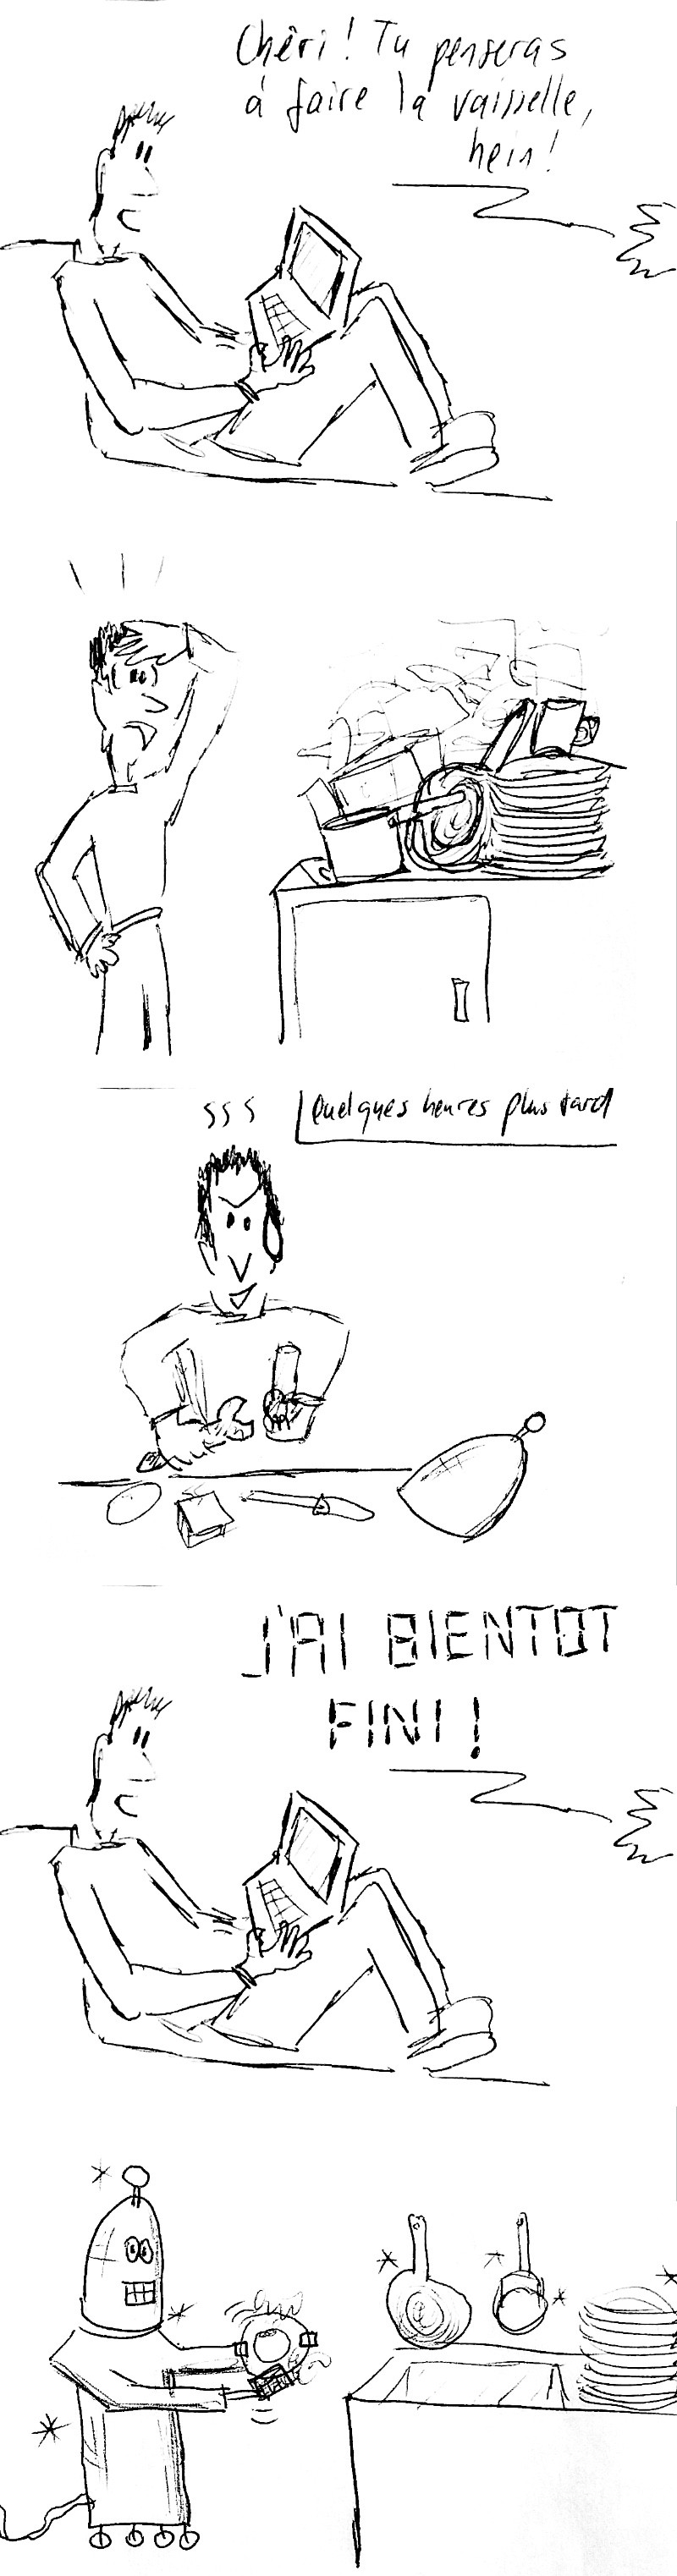 Chéri! Tu penseras
à faire la vaisselle,
hein!
Quelques heures plus tard
J'AI BIENTOT
FINI!